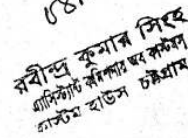 রবীন্দ্র কুমার সিংহ
এ্যাসিস্ট্যান্ট কমিশনার অব কাস্টমস
কাস্টম হাউস চট্টগ্রাম